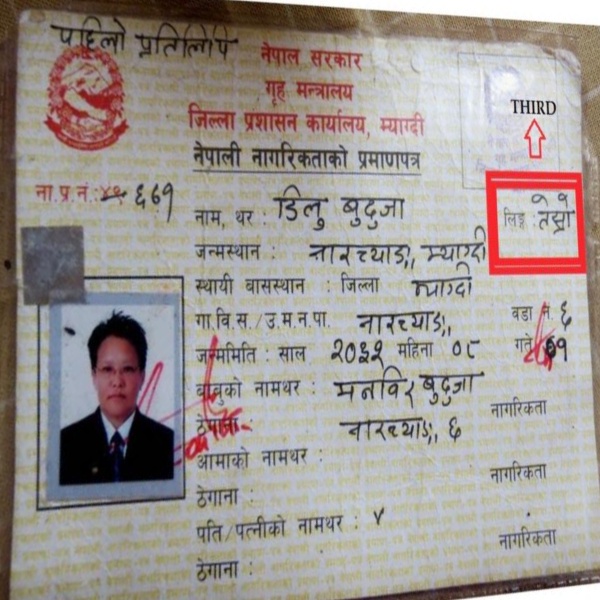 पहिलो प्रतिलिपि
नेपाल सरकार
गृह मन्त्रालय
जिल्ला प्रशासन कार्यालय, म्याग्दी
नेपाली नागरिकताको प्रमाणपत्र
THIRD
ना.प्र.नं.: ६७१
नाम, थर : डिलु बुदुजा
लिङ्ग : तेस्रो
जन्मस्थान : नारच्याङ, म्याग्दी
स्थायी बासस्थान : जिल्ला म्याग्दी
गा.वि.स./उ.म.न.पा. नारच्याङ, वडा नं. ६
जन्ममिति : साल २०३२ महिना ०८ गते ०१
बाबुको नामथर : मनविर बुदुजा
नागरिकता
ठेगाना: नारच्याङ, ६
आमाको नामथर :
नागरिकता
ठेगाना :
पति/पत्नीको नामथर :
नागरिकता
ठेगाना :